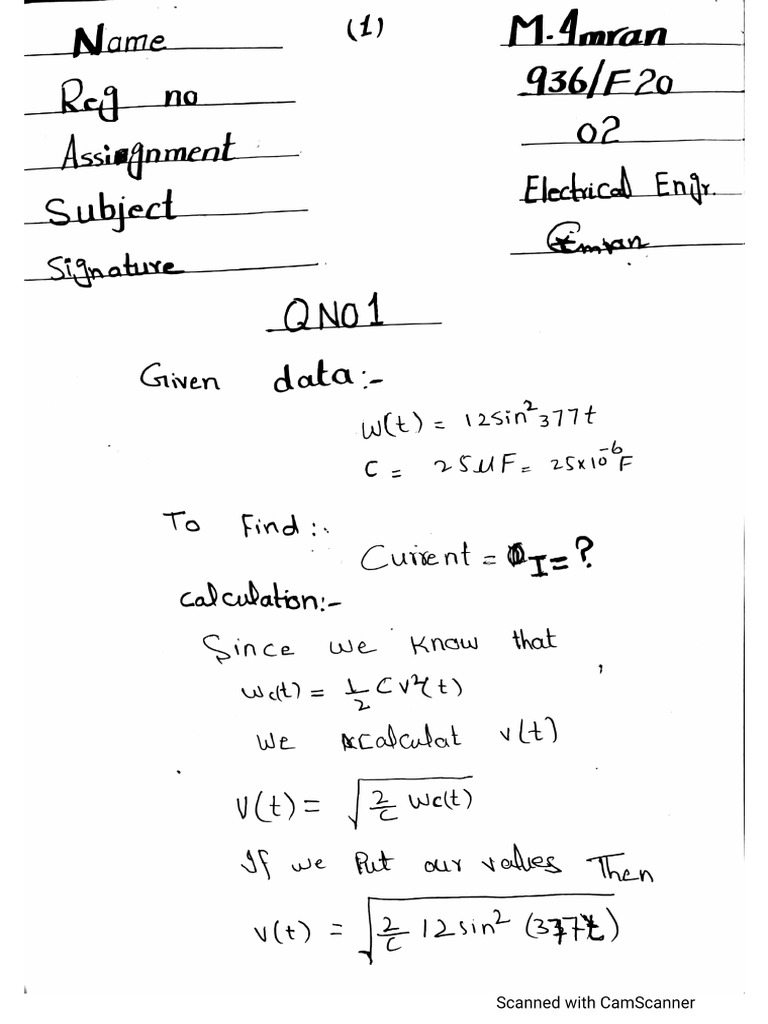 Name (1) M. Amran
Reg no 936/F20
Assignment 02
Subject Electrical Engr.
Signature
QNO1
Given data:-
W(t) = 12sin²377t
C = 25µF = 25x10⁻⁶F
To Find:-
Current = I = ?
Calculation:-
Since we know that,
Wc(t) = 1/2 CV²(t)
We calculat v(t)
V(t) = √(2/C Wc(t))
If we Put our values Then
v(t) = √(2/C 12sin² (377t))
Scanned with CamScanner